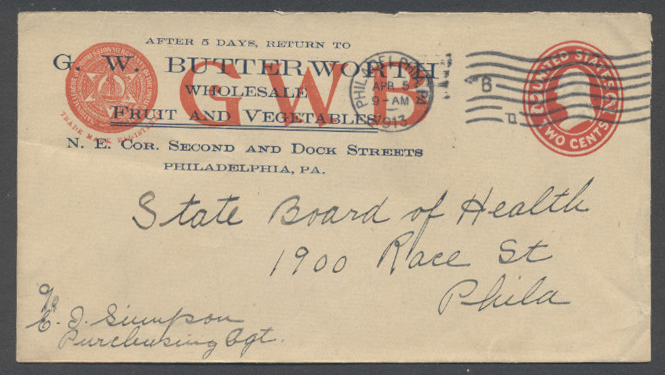 AFTER 5 DAYS, RETURN TO
G. W. BUTTERWORTH
WHOLESALE
FRUIT AND VEGETABLES
N. E. COR. SECOND AND DOCK STREETS
PHILADELPHIA, PA.
GWB
TRADE MARK
PHILADELPHIA, PA.
APR 5
9-AM
1913
B
UNITED STATES
TWO CENTS
State Board of Health
1900 Race St
Phila
c/o
E. J. Simpson
Purchasing Agt.